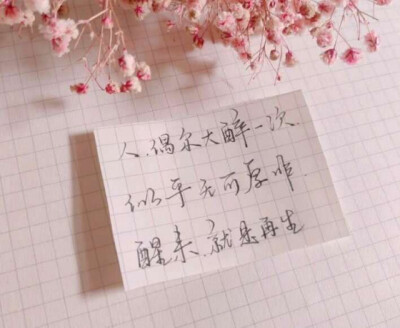 人、偶尔大醉一次、
似乎无可厚非.
醒来、就是再生